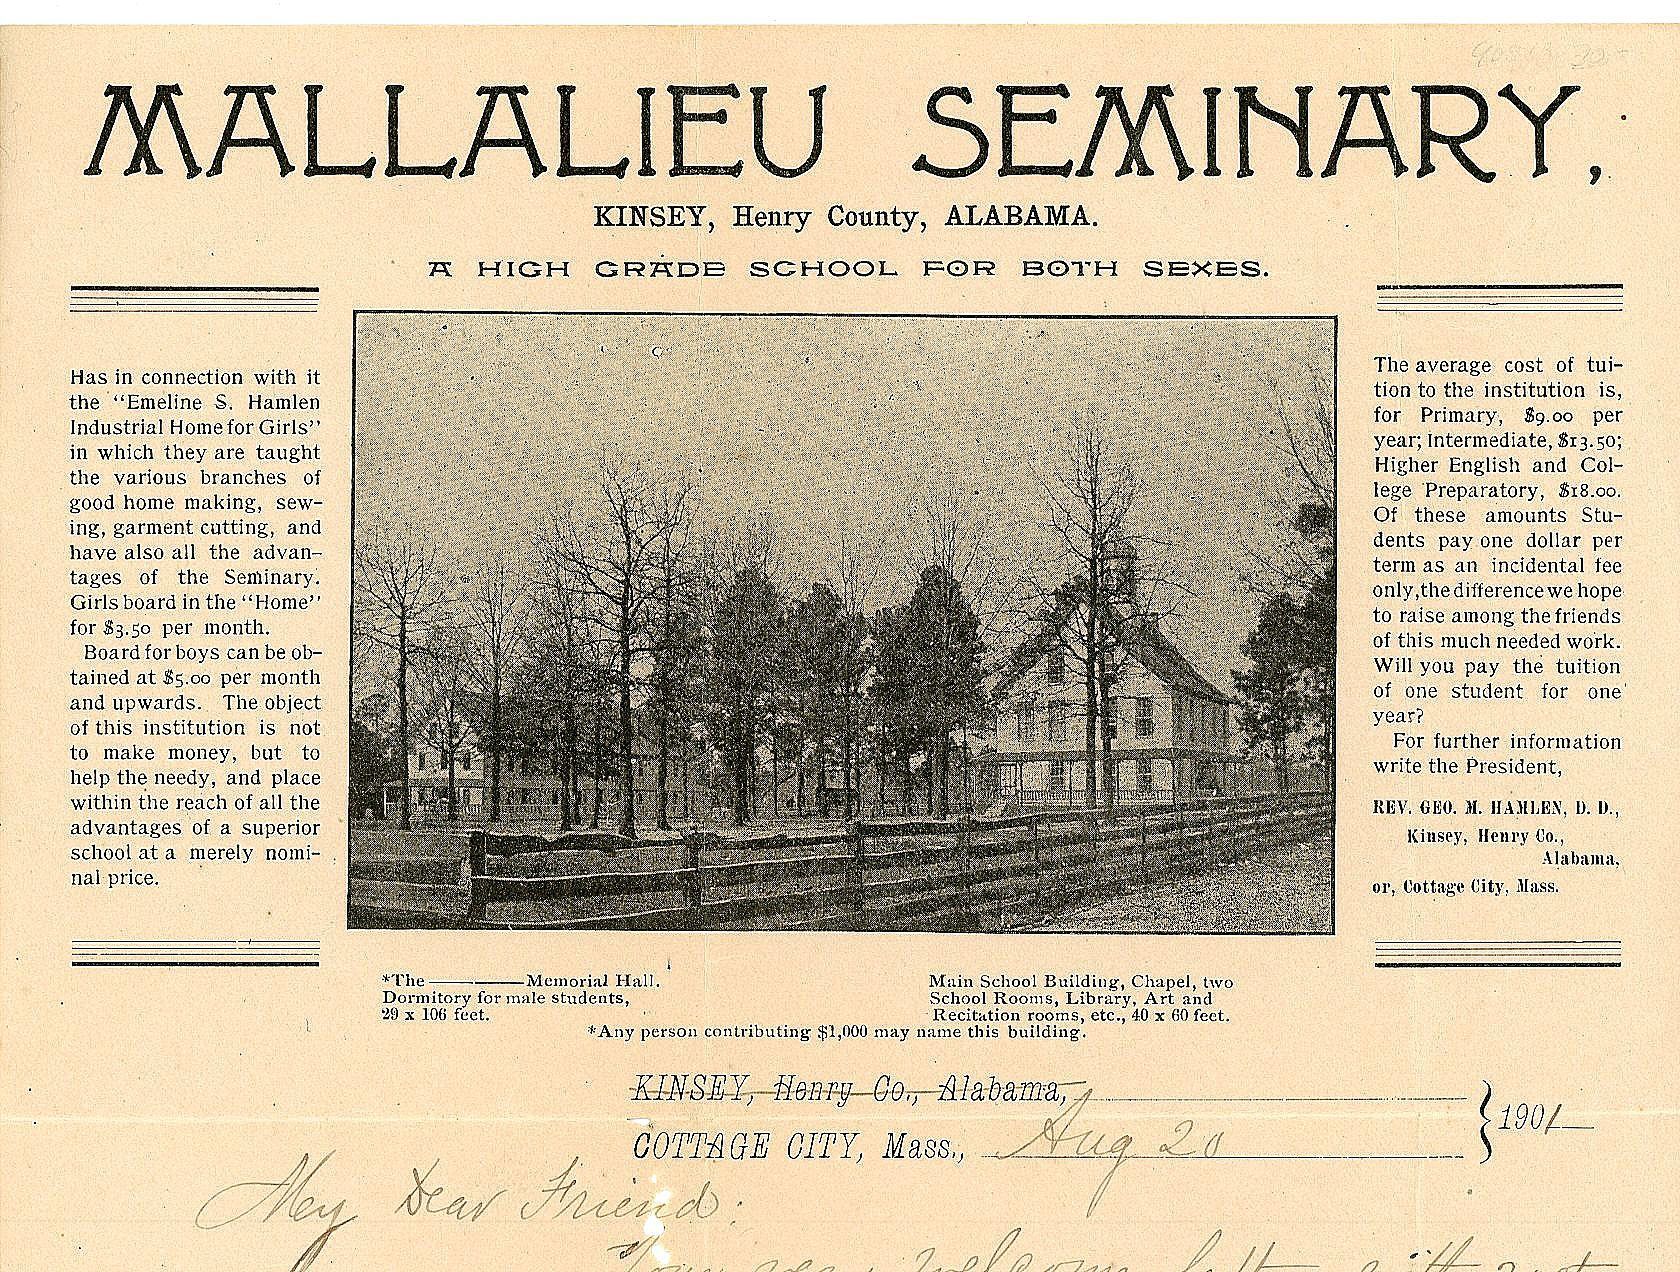 MALLALIEU SEMINARY,
KINSEY, Henry County, ALABAMA.
A HIGH GRADE SCHOOL FOR BOTH SEXES.
Has in connection with it
the "Emeline S. Hamlen
Industrial Home for Girls"
in which they are taught
the various branches of
good home making, sew-
ing, garment cutting, and
have also all the advan-
tages of the Seminary.
Girls board in the "Home"
for $3.50 per month.
Board for boys can be ob-
tained at $5.00 per month
and upwards. The object
of this institution is not
to make money, but to
help the needy, and place
within the reach of all the
advantages of a superior
school at a merely nomi-
nal price.
The average cost of tui-
tion to the institution is,
for Primary, $9.00 per
year; Intermediate, $13.50;
Higher English and Col-
lege Preparatory, $18.00.
Of these amounts Stu-
dents pay one dollar per
term as an incidental fee
only, the difference we hope
to raise among the friends
of this much needed work.
Will you pay the tuition
of one student for one
year?
For further information
write the President,
REV. GEO. M. HAMLEN, D. D.,
Kinsey, Henry Co.,
Alabama,
or, Cottage City, Mass.
*The ———— Memorial Hall.
Dormitory for male students,
29 x 106 feet.
Main School Building, Chapel, two
School Rooms, Library, Art and
Recitation rooms, etc., 40 x 60 feet.
*Any person contributing $1,000 may name this building.
KINSEY, Henry Co., Alabama,
COTTAGE CITY, Mass., Aug 20 1901
My Dear Friend:
Your very welcome